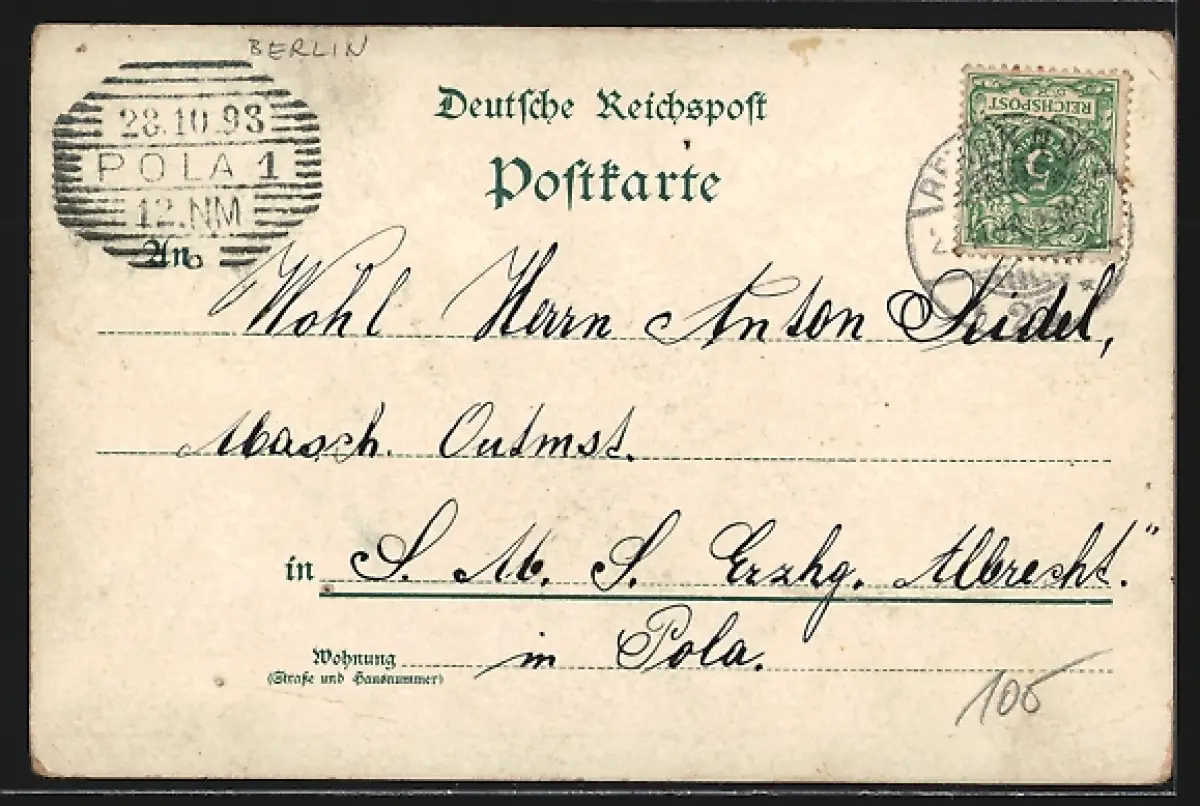 BERLIN
28.10.98
POLA 1
12.NM
Deutsche Reichspost
Postkarte
REICHSPOST
5
An
Wohl Herrn Anton Seidel,
Masch. Outmst.
in S. M. S. Erzhg. Albrecht."
in Pola.
Wohnung
(Straße und Hausnummer)
106